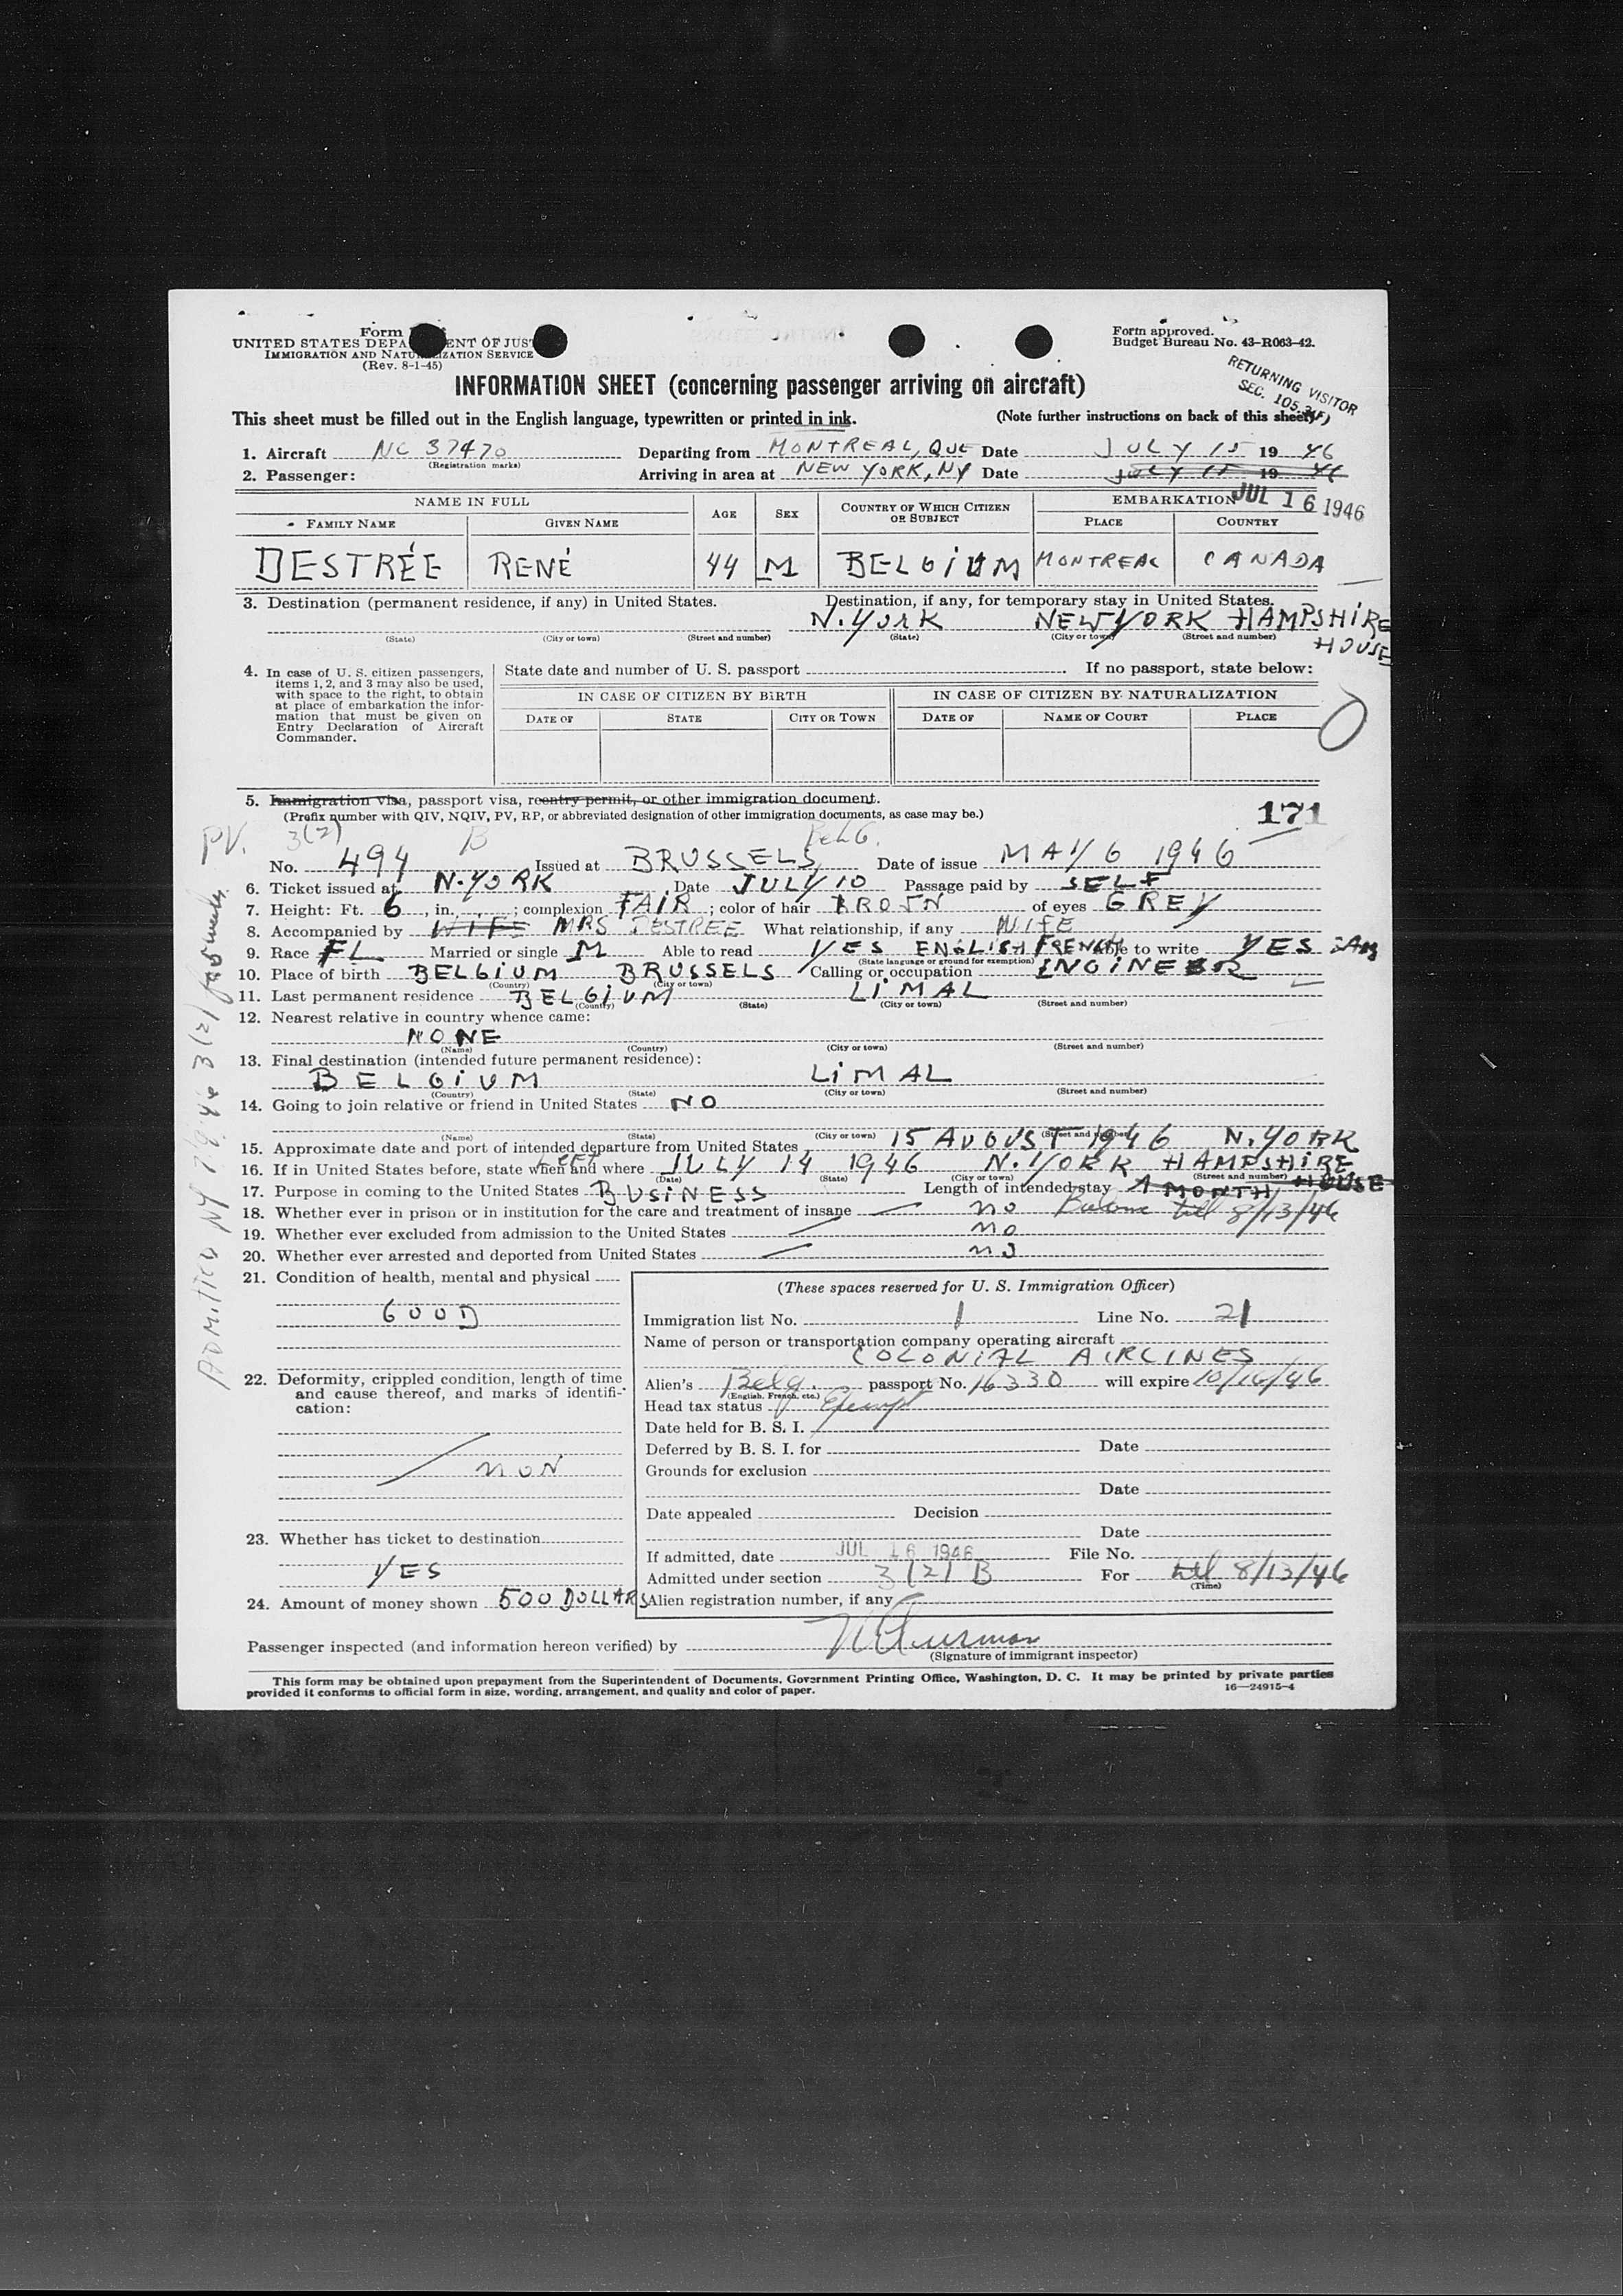 Form
UNITED STATES DEPA ENT OF JUST
IMMIGRATION AND NATU IZATION SERVICE
(Rev. 8-1-45)
Form approved.
Budget Bureau No. 43-R063-42.
RETURNING VISITOR
SEC. 105.3(F)
INFORMATION SHEET (concerning passenger arriving on aircraft)
This sheet must be filled out in the English language, typewritten or printed in ink. (Note further instructions on back of this sheet)
1. Aircraft NC 37470 Departing from MONTREAL, QUE Date JULY 15 19 46
(Registration marks)
2. Passenger: Arriving in area at NEW YORK, NY Date JULY 15 19 46
JUL 16 1946
NAME IN FULL AGE SEX COUNTRY OF WHICH CITIZEN OR SUBJECT EMBARKATION
FAMILY NAME GIVEN NAME PLACE COUNTRY
DESTRÉE RENÉ 44 M BELGIUM MONTREAL CANADA
3. Destination (permanent residence, if any) in United States. Destination, if any, for temporary stay in United States.
N.YORK NEW YORK HAMPSHIRE HOUSE
(State) (City or town) (Street and number) (State) (City or town) (Street and number)
4. In case of U. S. citizen passengers, items 1, 2, and 3 may also be used, with space to the right, to obtain at place of embarkation the information that must be given on Entry Declaration of Aircraft Commander.
State date and number of U. S. passport If no passport, state below:
IN CASE OF CITIZEN BY BIRTH IN CASE OF CITIZEN BY NATURALIZATION
DATE OF STATE CITY OR TOWN DATE OF NAME OF COURT PLACE
5. Immigration visa, passport visa, reentry permit, or other immigration document.
(Prefix number with QIV, NQIV, PV, RP, or abbreviated designation of other immigration documents, as case may be.)
171
PV. 3(2) B Belg.
No. 494 Issued at BRUSSELS Date of issue MAY 6 1946
6. Ticket issued at N.YORK Date JULY 10 Passage paid by SELF
7. Height: Ft. 6, in. ; complexion FAIR ; color of hair BROWN of eyes GREY
8. Accompanied by WIFE MRS DESTREE What relationship, if any WIFE
9. Race FL Married or single M Able to read YES ENGLISH FRENCH Able to write YES
(State language or ground for exemption)
10. Place of birth BELGIUM BRUSSELS Calling or occupation ENGINEER
(Country) (City or town)
11. Last permanent residence BELGIUM LIMAL
(Country) (State) (City or town) (Street and number)
12. Nearest relative in country whence came:
NONE
(Name) (Country) (City or town) (Street and number)
13. Final destination (intended future permanent residence):
BELGIUM LIMAL
(Country) (State) (City or town) (Street and number)
14. Going to join relative or friend in United States NO
(Name) (State) (City or town) (Street and number)
15. Approximate date and port of intended departure from United States 15 AUGUST 1946 N.YORK
16. If in United States before, state when and where JULY 14 1946 N.YORK HAMPSHIRE HOUSE
(Date) (State) (City or town) (Street and number)
17. Purpose in coming to the United States BUSINESS Length of intended stay 1 MONTH
18. Whether ever in prison or in institution for the care and treatment of insane no Balance till 8/13/46
19. Whether ever excluded from admission to the United States no
20. Whether ever arrested and deported from United States no
21. Condition of health, mental and physical
GOOD
22. Deformity, crippled condition, length of time and cause thereof, and marks of identification:
NON
23. Whether has ticket to destination
YES
24. Amount of money shown 500 DOLLARS
(These spaces reserved for U. S. Immigration Officer)
Immigration list No. 1 Line No. 21
Name of person or transportation company operating aircraft
COLONIAL AIRLINES
Alien's Belg. passport No. 16330 will expire 10/16/46
(English, French, etc.)
Head tax status Exempt
Date held for B. S. I.
Deferred by B. S. I. for Date
Grounds for exclusion
Date
Date appealed Decision
Date
If admitted, date JUL 16 1946 File No.
Admitted under section 3(2) B For till 8/13/46
(Time)
Alien registration number, if any
Passenger inspected (and information hereon verified) by
(Signature of immigrant inspector)
This form may be obtained upon prepayment from the Superintendent of Documents, Government Printing Office, Washington, D. C. It may be printed by private parties
provided it conforms to official form in size, wording, arrangement, and quality and color of paper. 16—24915-4